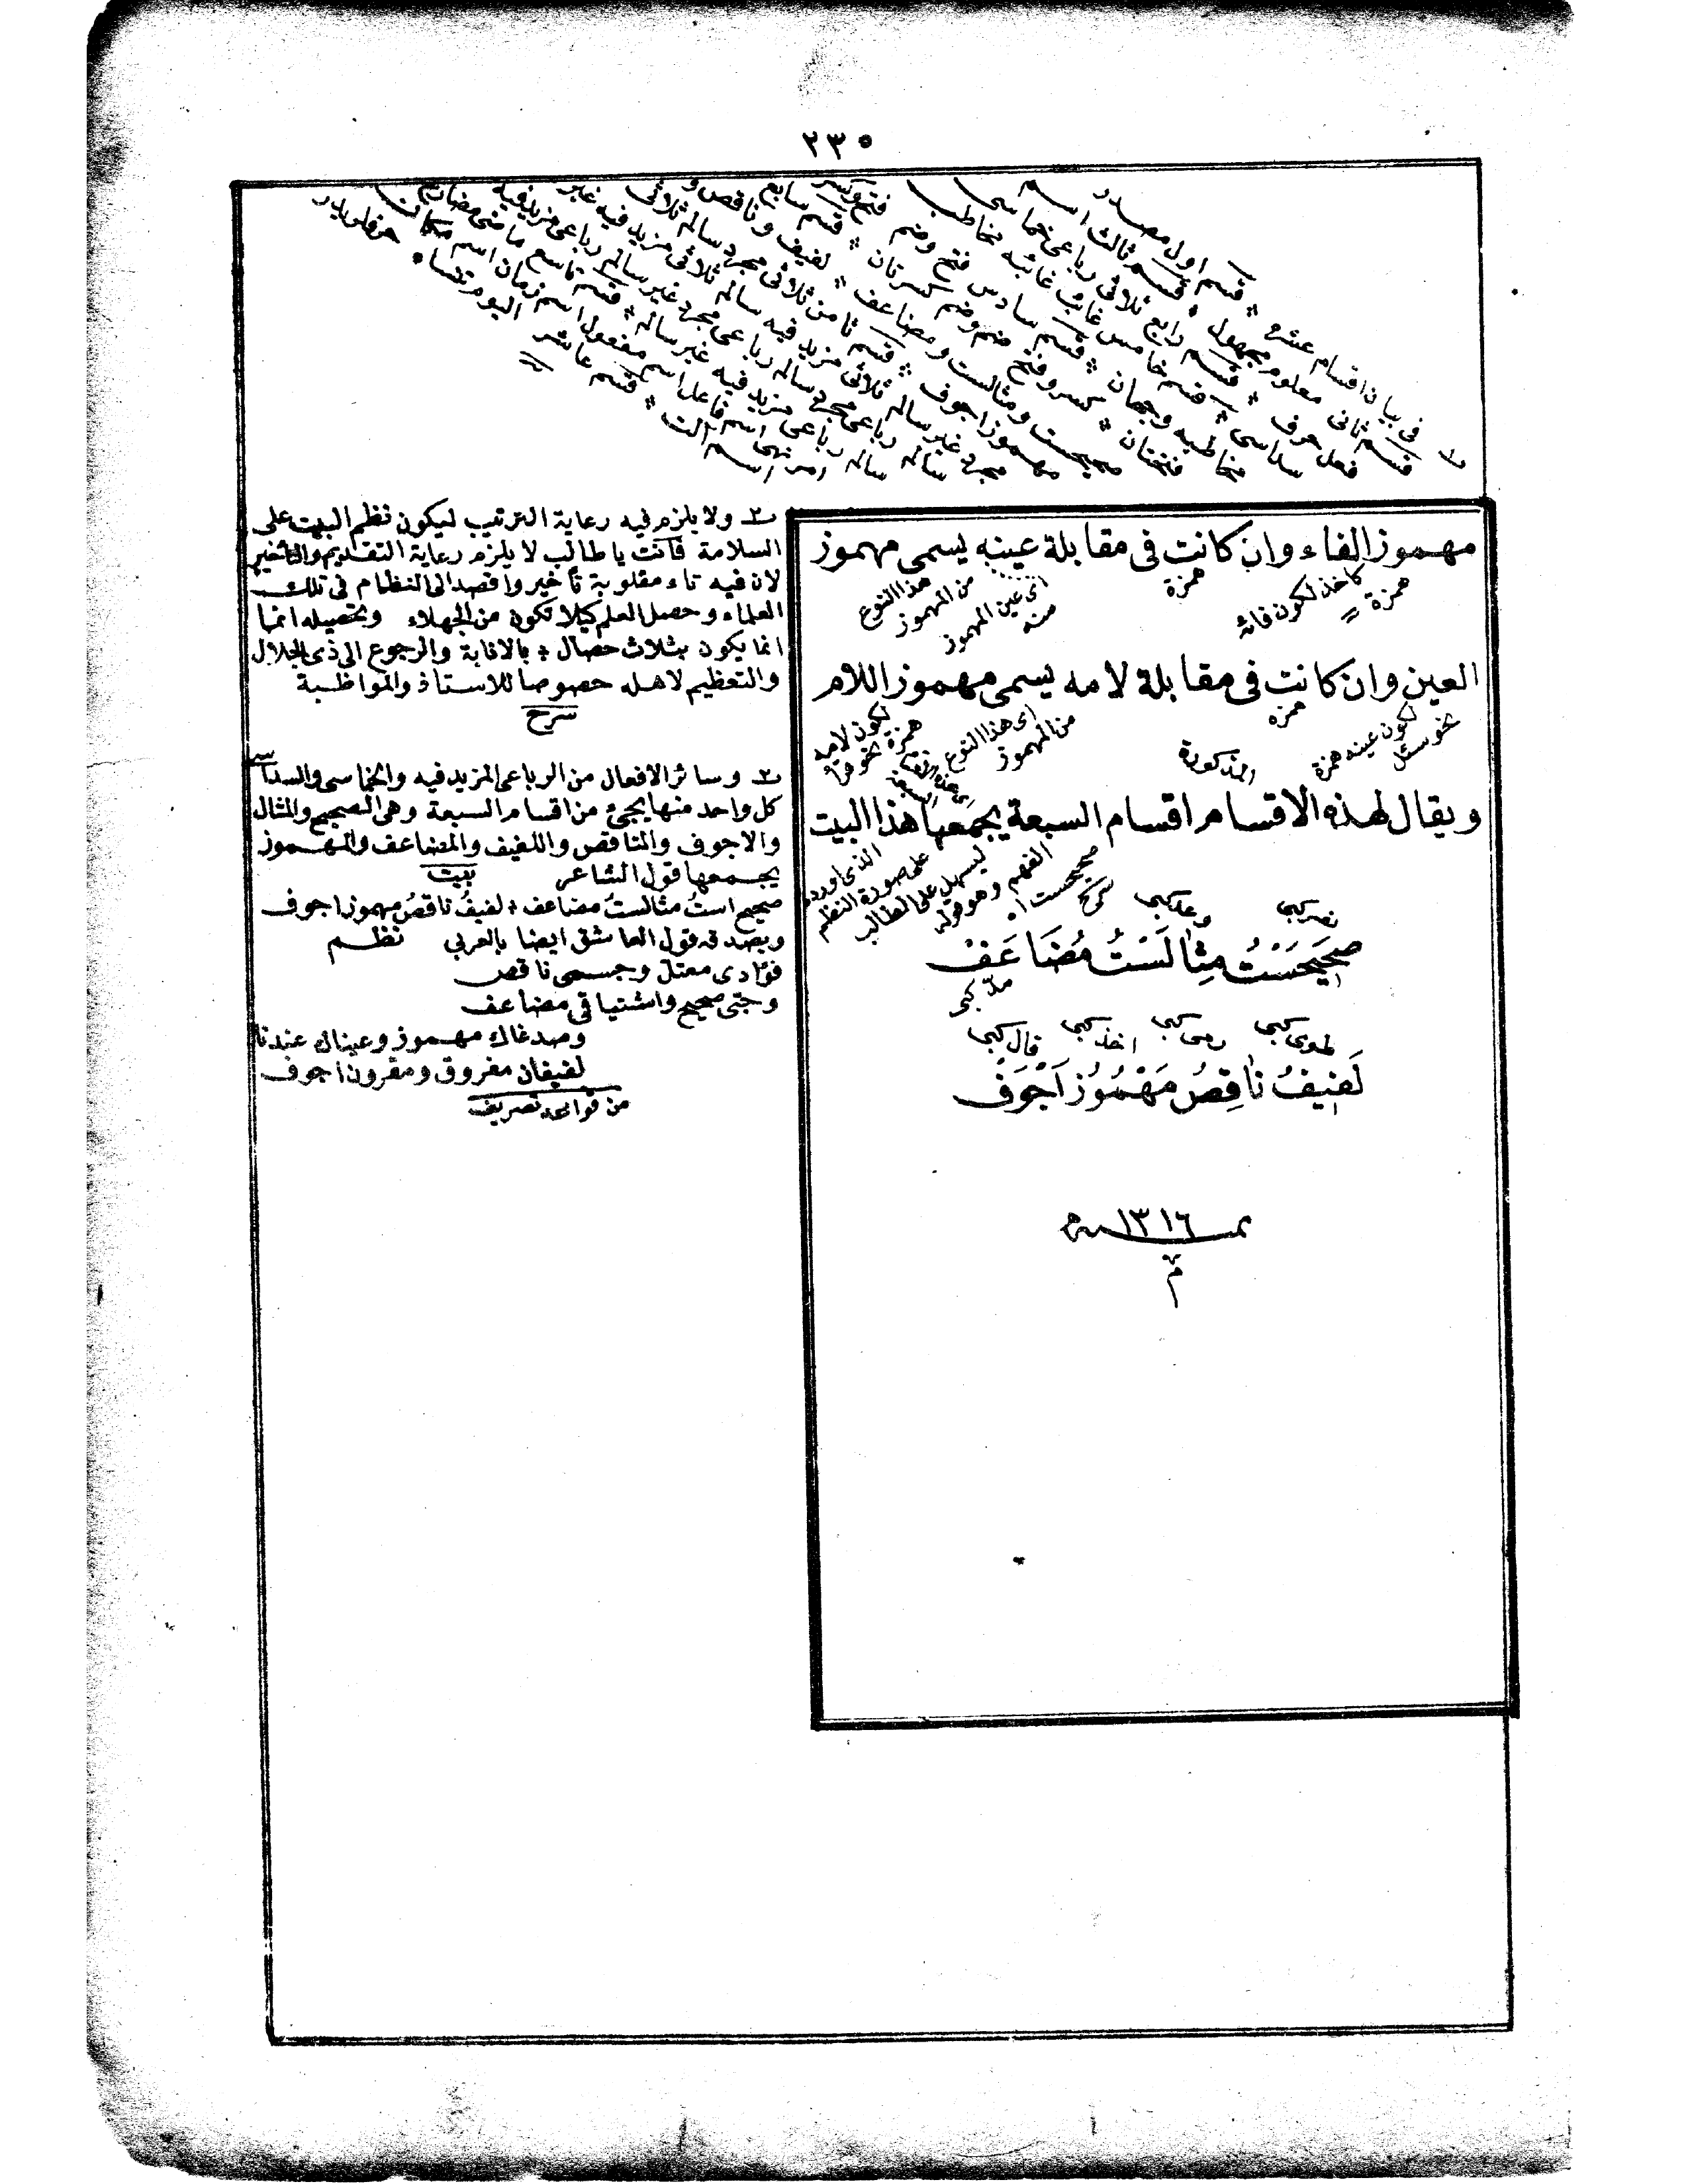 ٢٣٥
في بيان اقسام عشره قسم اول مصدر
قسم ثانى معلوم مجهول قسم ثالث اسم
فعل حرف قسم رابع ثلاثى رباعى خماسى
سداسى قسم خامس غائب غائبه مخاطب
مخاطبه وجهان قسم سادس فتح وضم فتح وكسر
فتحتان كسر وفتح ضم وضم كسرتان قسم سابع
صحيحست ومثالست ومضاعف لفيف وناقص و
مهموز اجوف قسم ثامن ثلاثى مجرد سالم ثلاثى
مجرد غير سالم ثلاثى مزيد فيه سالم ثلاثى مزيد فيه غير
سالم رباعى مجرد سالم رباعى مجرد غير سالم رباعى مزيد فيه
سالم رباعى مزيد فيه غير سالم قسم تاسع ماضى مضارع
امر نهى اسم فاعل اسم مفعول اسم زمان اسم مكان
اسم الت قسم عاشر اليوم تنسا حرفلريدر
مهموز الفاء وان كانت فى مقابلة عينه يسمى مهموز
همزة
كاخذ لكون فائه
همزة
اى عين المهموز
منه
هذا النوع
من المهموز
العين وان كانت فى مقابلة لامه يسمى مهموز اللام
نحو سئل
لكون عينه همزة
همزه
المذكورة
اى هذا النوع
من المهموز
لكون لامه
همزة نحو قرأ
ويقال لهذه الاقسام اقسام السبعة يجمعها هذا البيت
الذى اورده
على صورة النظم
ليسهل على الطالب
الفهم وهو قوله
صحيحست اه
شرح
نصر كبى
وعد كبى
صَحِيحَسْتُ مِثَالَسْتُ مُضَاعَفْ
مد كبى
طوى كبى
رمى كبى
اخذ كبى
قال كبى
لَفِيفُ نَاقِصُ مَهْمُوزُ اَجْوَفْ
١٣١٦
م
٢ ولا يلزم فيه رعاية الترتيب ليكون نظم البيت على
السلامة فانت يا طالب لا يلزم رعاية التقديم والتأخير
لان فيه تاء مقلوبة تأخير واقصد الى النظام فى تلك
العلماء وحصل العلم كيلا تكون من الجهلاء وتحصيله انما
انما يكون بثلاث خصال بالانابة والرجوع الى ذى الجلال
والتعظيم لاهله خصوصا للاستاذ والمواظبة
شرح
٣ وسائر الافعال من الرباعى المزيد فيه والخماسى والسداسى
كل واحد منها يجئ من اقسام السبعة وهى الصحيح والمثال
والاجوف والناقص واللفيف والمضاعف والمهموز
يجمعها قول الشاعر بيت
صحيح استُ مثالستُ مضاعف لفيفُ ناقصُ مهموز اجوف
ويصدقه قول العاشق ايضا بالعربى نظم
فؤادى معتل وجسمى ناقص
وحبّى صحيح واشتياقى مضاعف
وصدغاك مهموز وعيناك عندنا
لفيفان مفروق ومقرون اجوف
من قواعد تصريف